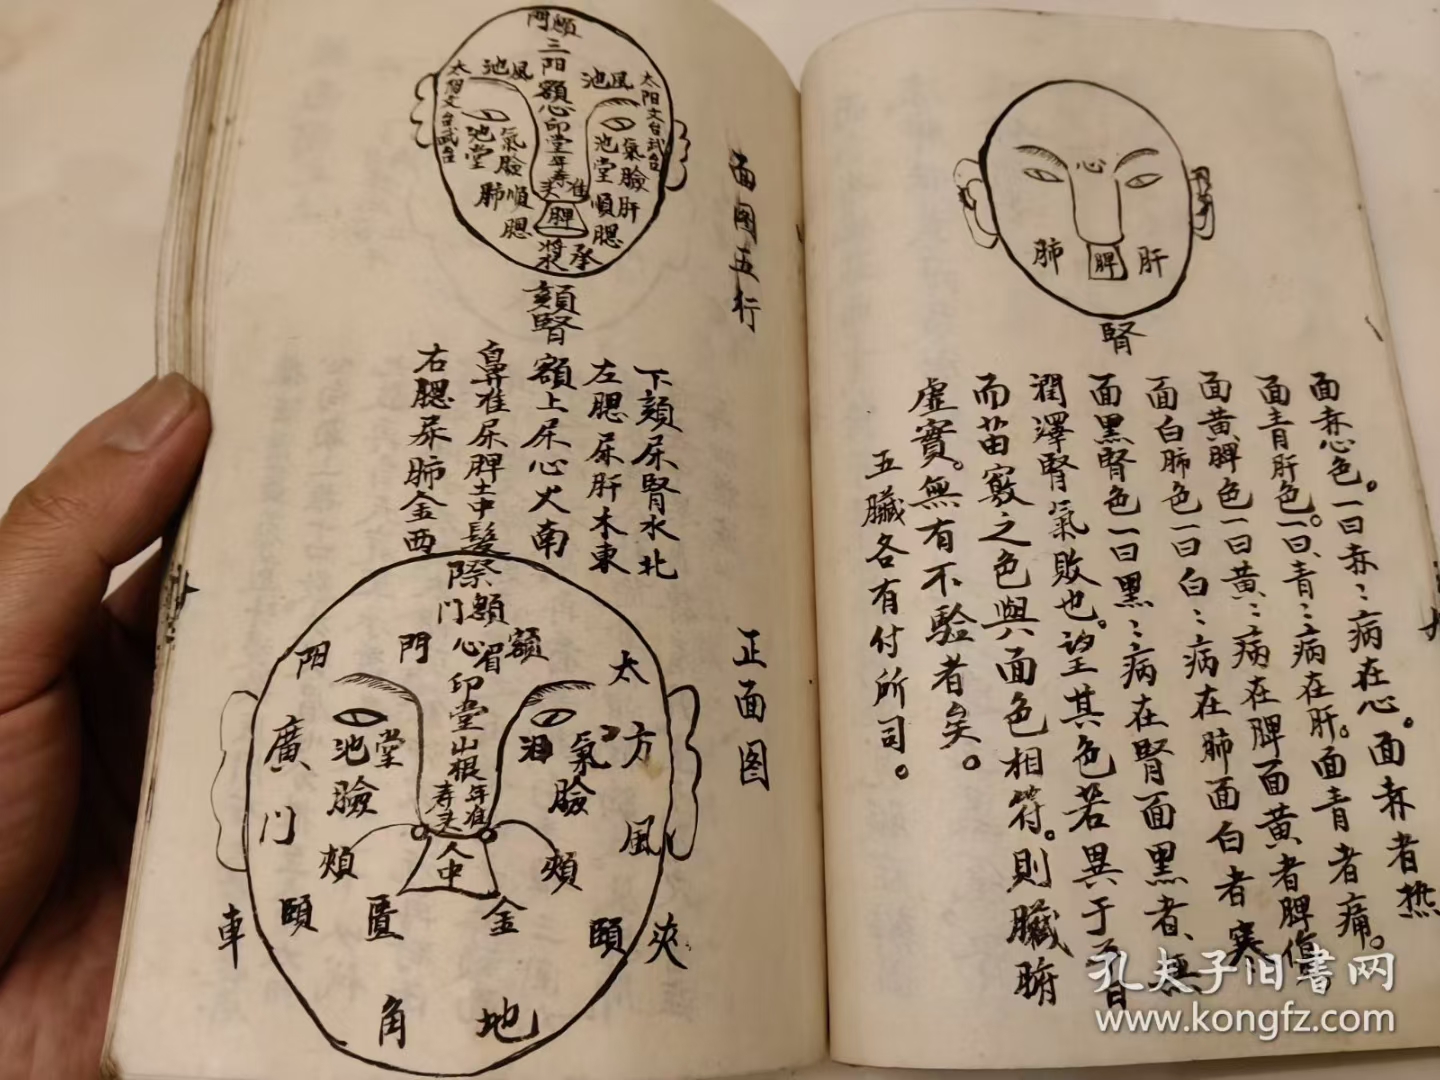 心
肺
脾
肝
腎
面赤心色。一曰赤〻病在心。面赤者热
面青肝色。一曰、青〻病在肝。面青者痛。
面黄脾色一曰黄〻病在脾面黄者脾傷
面白肺色一曰白〻病在肺面白者寒
面黑腎色一曰黑〻病在腎面黑者、無
潤澤腎氣敗也。望其色若異于
而苗竅之色與面色相符。則臟腑
虛實。無有不驗者矣。
五臟各有付所司。
面图五行
門顖
三阳
額
心
印堂
年寿
准头
池風
池風
太阳文台武台
太阳文台武台
池堂
氣臉
池堂
氣臉
肺順腮
順肝腮
脾
漿承
頦腎
下頦屎腎水北
左腮屎肝木東
額上屎心火南
鼻准屎脾土中
右腮屎肺金西
正面图
髮際
門顖
心
額
眉
印堂
山根
年寿
准头
人中
阳
門
太
廣
門
池堂
臉
泪
氣
臉
方
風
頰
頰
車
頤
匱
金
頤
夾
角
地
孔夫子旧書网
www.kongfz.com